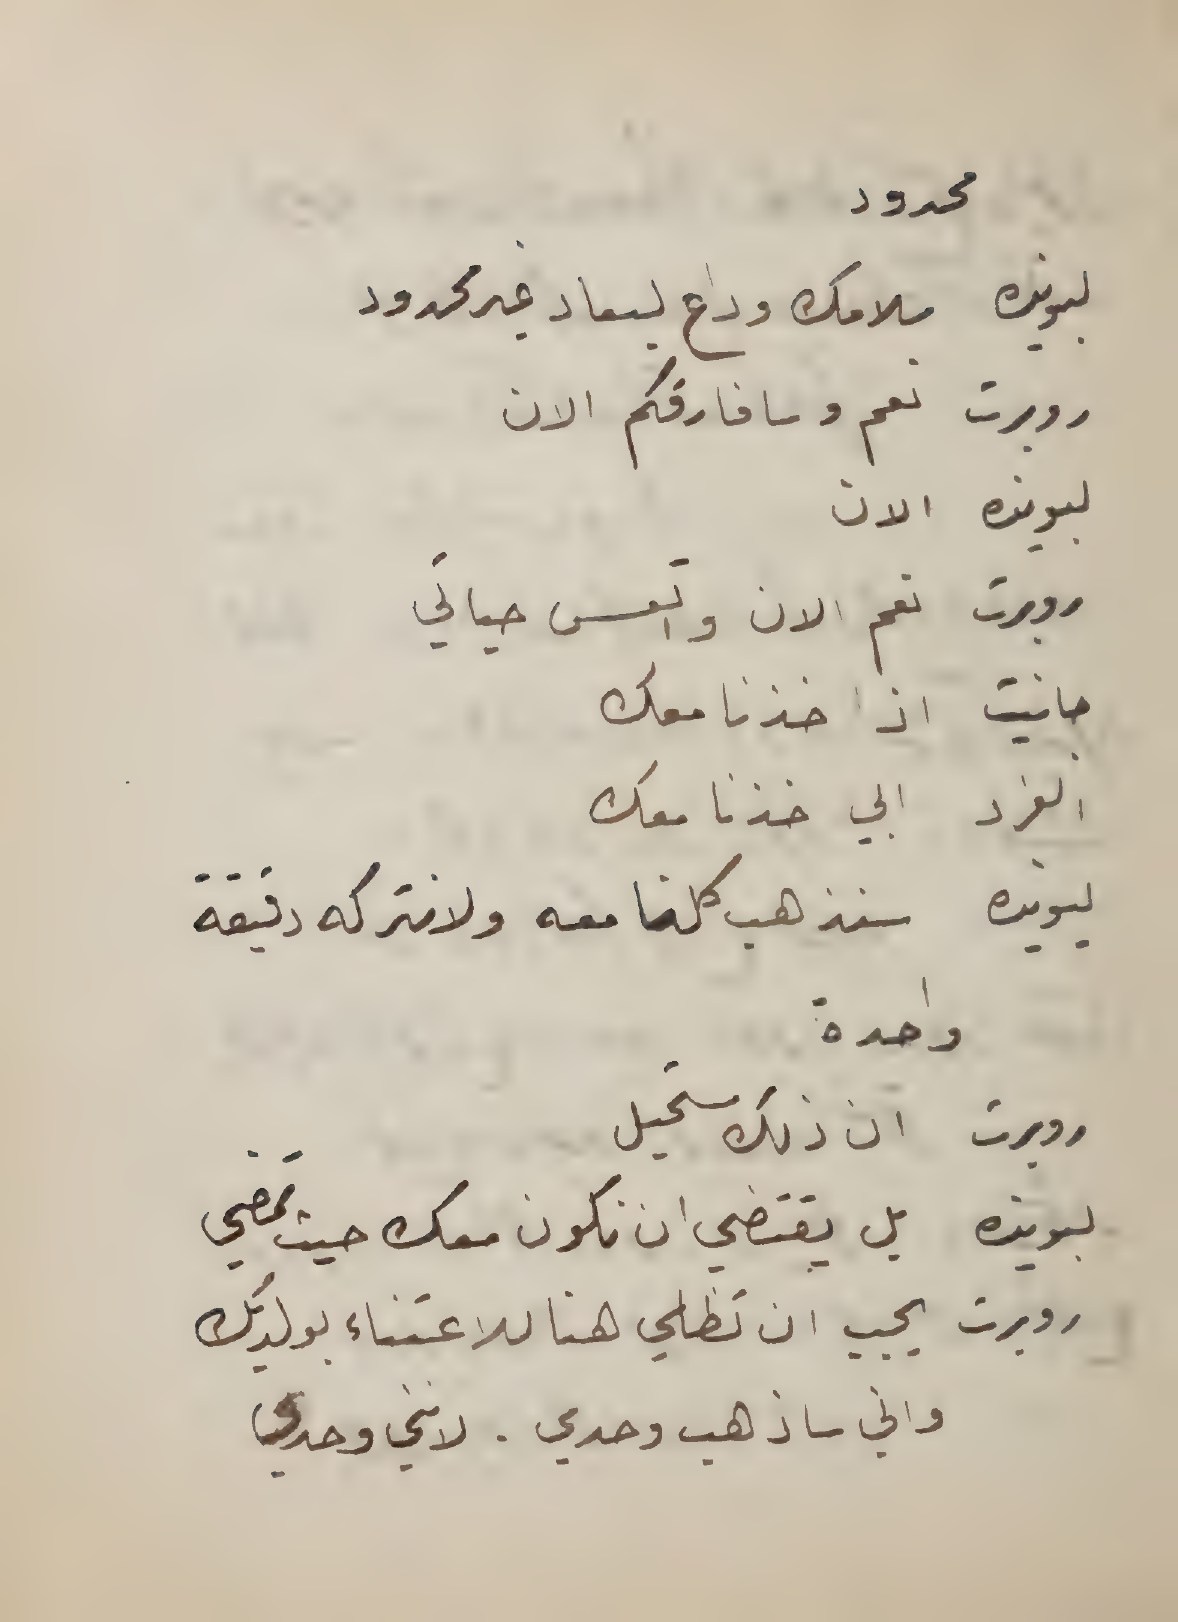 محدود
ليونيده بلامك وداع لبعاد غير محدود
روبرت نعم وسافارقكم الان
ليونيده الان
روبرت نعم الان واتعس حياتي
جانيت اذا خذنا معك
الفرد ابي خذنا معك
ليونيده سنذهب كلنا معه ولا نتركه دقيقة
واحدة
روبرت ان ذلك مستحيل
ليونيده بل يقتضي ان نكون معك حيث تمضي
روبرت يجب ان تظلي هنا للاعتناء بولديك
واني ساذهب وحدي . لانني وحدي